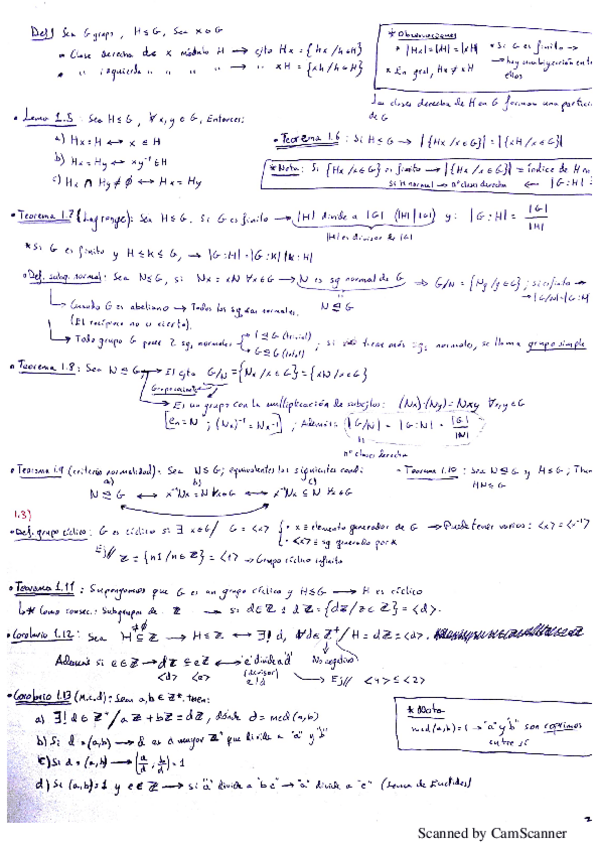 Def) Sea G grupo, H ≤ G, Sea x ∈ G
• Clase derecha de x módulo H → cjto Hx = {hx / h ∈ H}
• " izquierda " " " → " xH = {xh / h ∈ H}
* Observaciones
• |Hx| = |H| = |xH|
• En gral, Hx ≠ xH
• Si G es finito →
→ hay una biyección ent
ellos
Las clases derecha de H en G forman una partici
de G
• Lema 1.5: Sea H ≤ G, ∀x,y ∈ G, Entonces:
a) Hx = H ↔ x ∈ H
b) Hx = Hy ↔ xy⁻¹ ∈ H
c) Hx ∩ Hy ≠ ∅ ↔ Hx = Hy
• Teorema 1.6: Si H ≤ G → |{Hx / x ∈ G}| = |{xH / x ∈ G}|
* Nota: Si {Hx / x ∈ G} es finito → |{Hx / x ∈ G}| = índice de H en
si H normal → nº clases derecha ← |G:H|
• Teorema 1.7 (Lagrange): Sea H ≤ G. Si G es finito → |H| divide a |G| (|H| | |G|) y: |G:H| = |G|/|H|
|H| es divisor de |G|
* Si G es finito y H ≤ K ≤ G, → |G:H| = |G:K| |K:H|
• Def. subg. normal: Sea N ≤ G, si Nx = xN ∀x ∈ G → N es sg normal de G ⇒ G/N = {Ng / g ∈ G}; si es finito →
N ⊴ G
→ |G/N| = |G:N|
→ Cuando G es abeliano → Todos los sg son normales.
(El recíproco no es cierto).
→ Todo grupo G posee 2 sg. normales
• 1 ⊴ G (trivial)
• G ⊴ G (total)
; si no tiene más sg normales, se llama grupo simple
• Teorema 1.8: Sea N ⊴ G → El cjto G/N = {Nx / x ∈ G} = {xN / x ∈ G}
Grupo cociente
→ Es un grupo con la multiplicación de subcjtos: (Nx)·(Ny) = Nxy ∀x,y ∈ G
[e = N ; (Nx)⁻¹ = Nx⁻¹] ; Además: |G/N| = |G:N| = |G|/|N|
nº clases derecha
• Teorema 1.9 (criterio normalidad): Sea N ≤ G; equivalentes las siguientes condi:
a) b) c)
N ⊴ G ↔ x⁻¹Nx = N ∀x ∈ G ↔ x⁻¹Nx ≤ N ∀x ∈ G
• Teorema 1.10: Sea N ⊴ G y H ≤ G; Then
HN ≤ G
1.3)
• Def. grupo cíclico: G es cíclico si ∃ x ∈ G / G = <x>
• x ≡ elemento generador de G → Puede tener varios: <x> = <x⁻¹>
• <x> ≡ sg generado por x
Ej// Z = {n1 / n ∈ Z} = <1> → Grupo cíclico infinito
• Teorema 1.11: Supongamos que G es un grupo cíclico y H ≤ G → H es cíclico
* Como consec.: Subgrupos de Z → si d ∈ Z ≡ dZ = {dz / z ∈ Z} = <d>.
• Corolario 1.12: Sea H ⊆ Z → H ≤ Z ↔ ∃! d, d ∈ Z⁺ / H = dZ = <d>.
Además si e ∈ Z → dZ ≤ eZ ↔ "e" divide a "d"
<d> <e>
(divisor)
e | d
No negativo
→ Ej// <4> ≤ <2>
• Corolario 1.13 (m.c.d): Sean a,b ∈ Z⁺. then:
a) ∃! d ∈ Z⁺ / aZ + bZ = dZ, dónde d = mcd(a,b)
b) Si d = (a,b) → d es el mayor Z⁺ que divide a "a" y "b"
c) Si d = (a,b) → (a/d, b/d) = 1
d) Si (a,b) = 1 y c ∈ Z → si "a" divide a "bc" → "a" divide a "c" (Lema de Euclides)
* Nota
mcd(a,b) = 1 → "a" y "b" son coprimos
entre sí
2
Scanned by CamScanner